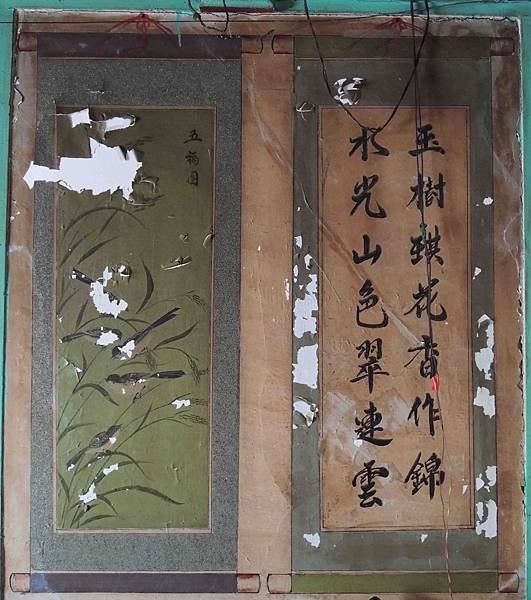 玉樹琪花香作錦
水光山色翠連雲
五福圖